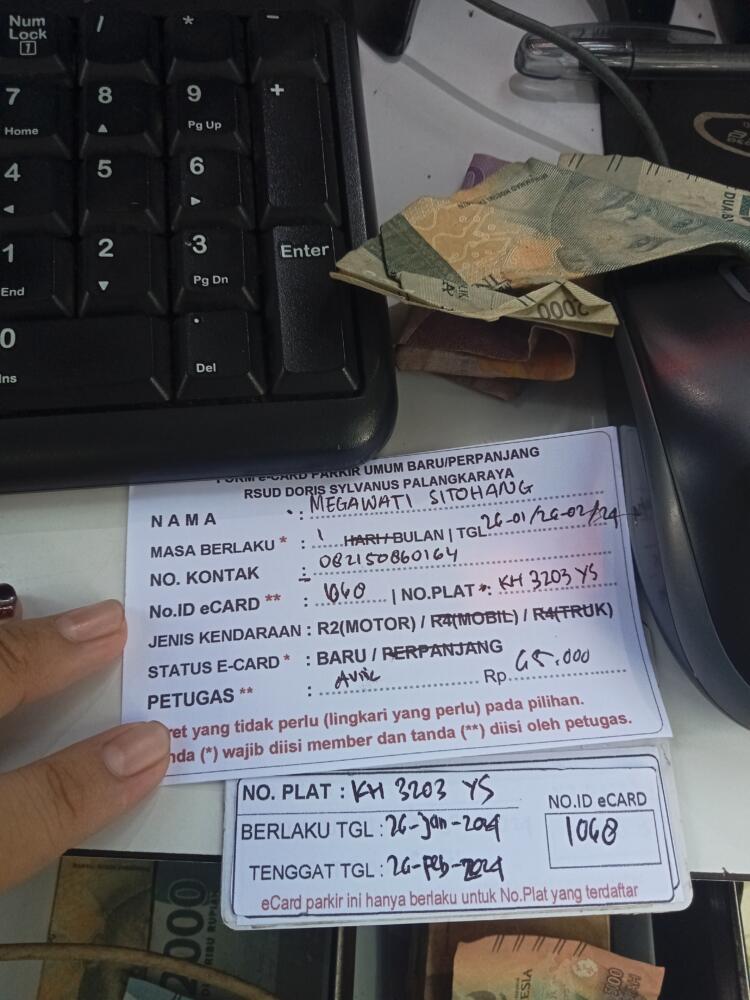 Num
Lock
1
/
*
-
7
Home
8
9
Pg Up
+
4
5
6
1
End
2
3
Pg Dn
Enter
0
Ins
.
Del
2000
FORM e-CARD PARKIR UMUM BARU/PERPANJANG
RSUD DORIS SYLVANUS PALANGKARAYA
NAMA : MEGAWATI SITOHANG
MASA BERLAKU * : 1 HARI / BULAN | TGL 26-01/26-02/24
NO. KONTAK : 082150860164
No.ID eCARD ** : 1068 | NO.PLAT *: KH 3203 YS
JENIS KENDARAAN : R2(MOTOR) / R4(MOBIL) / R4(TRUK)
STATUS E-CARD * : BARU / PERPANJANG
PETUGAS ** : Rp. 65.000
ret yang tidak perlu (lingkari yang perlu) pada pilihan.
nda (*) wajib diisi member dan tanda (**) diisi oleh petugas.
NO. PLAT : KH 3203 YS
NO.ID eCARD
BERLAKU TGL : 26-Jan-2024
1068
TENGGAT TGL : 26-Feb-2024
eCard parkir ini hanya berlaku untuk No.Plat yang terdaftar
2000